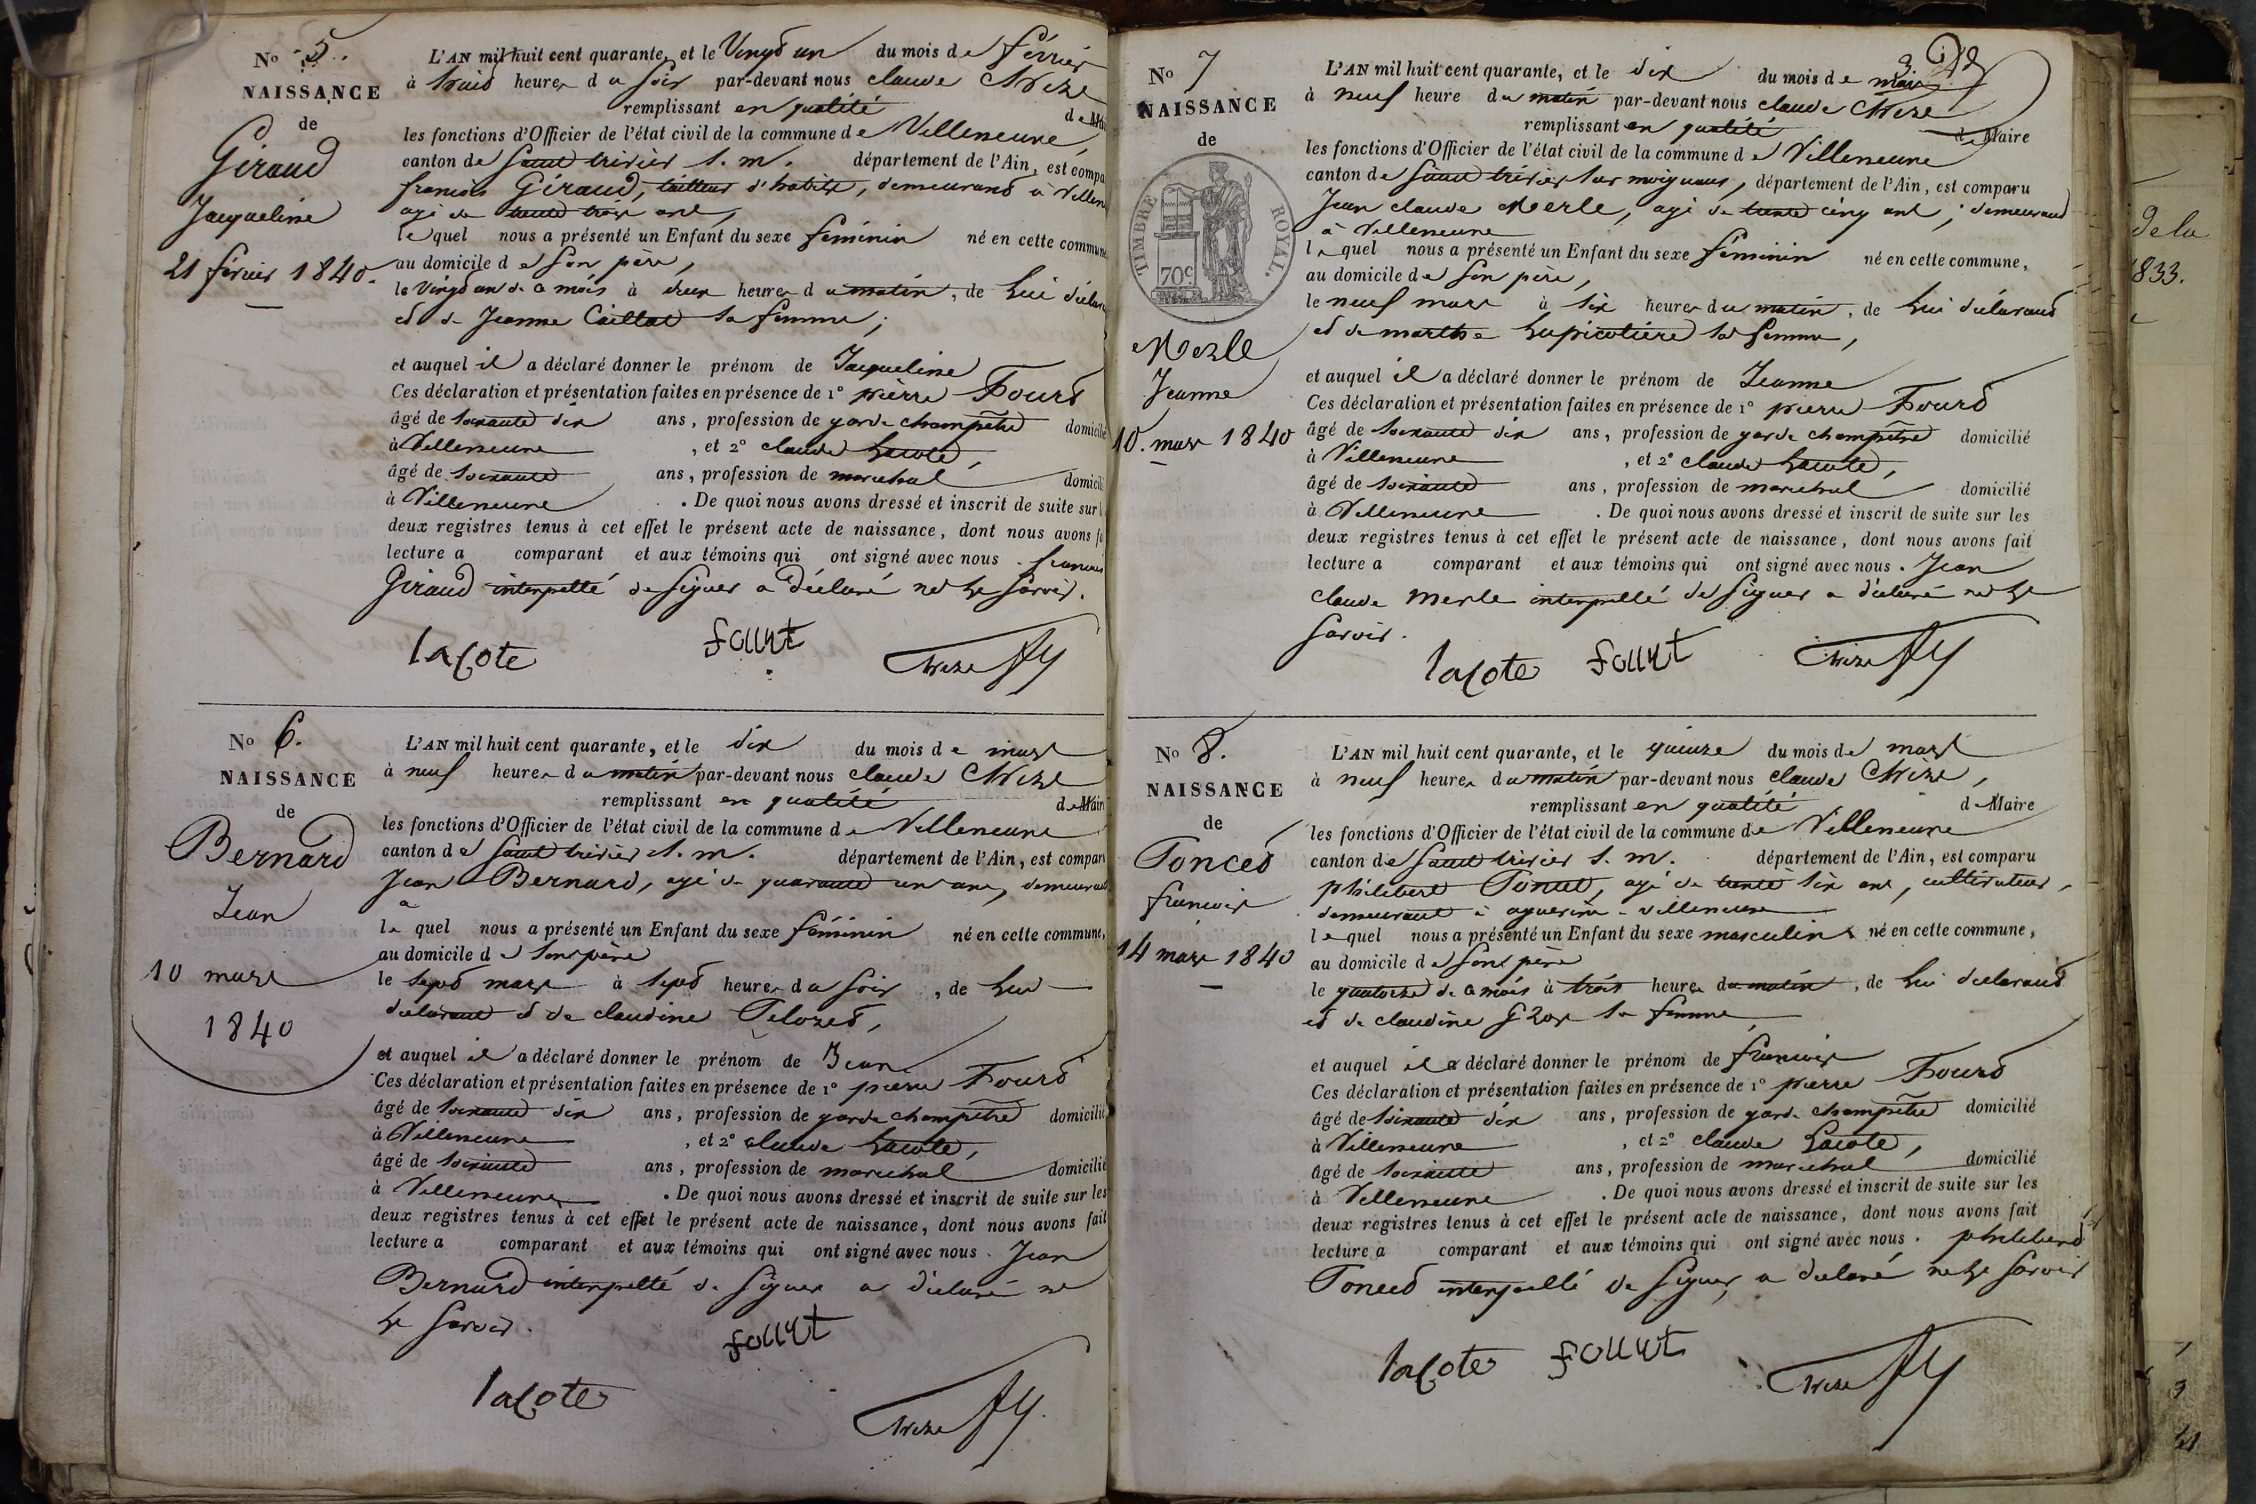 No 5.
NAISSANCE
de
Giraud
Jacqueline
21 février 1840.
L'AN mil huit cent quarante, et le Vingt un du mois de février
à trois heures du soir par-devant nous claude
remplissant en qualité de Mai
les fonctions d'Officier de l'état civil de la commune de Villeneuve,
canton de Saint trivier s. m. département de l'Ain, est compa
francois Giraud, tailleur d'habits, demeurand a Villen
agé de trente trois ans,
lequel nous a présenté un Enfant du sexe féminin né en cette commune
au domicile de son père,
le Vingt un de ce mois à deux heures du matin, de lui déclara
et de Jeanne Caillat sa femme;
et auquel il a déclaré donner le prénom de Jacqueline
Ces déclaration et présentation faites en présence de 1° pierre
âgé de soixante dix ans, profession de garde champêtre domicilié
à Villeneuve, et 2° claude Lacote,
âgé de soixante ans, profession de marechal domicili
à Villeneuve. De quoi nous avons dressé et inscrit de suite sur l
deux registres tenus à cet effet le présent acte de naissance, dont nous avons fa
lecture a comparant et aux témoins qui ont signé avec nous. francois
Giraud interpellé de signer a déclaré ne le savoir.
lacote
No 6.
NAISSANCE
de
Bernard
Jean
10 mars
1840
L'AN mil huit cent quarante, et le dix du mois de mars
à neuf heures du matin par-devant nous claude
remplissant en qualité de Mair
les fonctions d'Officier de l'état civil de la commune de Villeneuve
canton de Saint trivier s. m. département de l'Ain, est compar
Jean Bernard, agé de quarante un ans, demeurant
a
lequel nous a présenté un Enfant du sexe féminin né en cette commune,
au domicile de son père
le sept mars à sept heures du soir, de lui
déclarant et de claudine
et auquel il a déclaré donner le prénom de Jean
Ces déclaration et présentation faites en présence de 1° pierre
âgé de soixante dix ans, profession de garde champêtre domicilié
à Villeneuve, et 2° claude Lacote,
âgé de soixante ans, profession de marechal domicilié
à Villeneuve. De quoi nous avons dressé et inscrit de suite sur les
deux registres tenus à cet effet le présent acte de naissance, dont nous avons fait
lecture a comparant et aux témoins qui ont signé avec nous. Jean
Bernard interpellé de signer a déclaré ne
le savoir.
lacote
No 7
NAISSANCE
de
TIMBRE ROYAL.
70c
Merle
Jeanne
10. mars 1840
L'AN mil huit cent quarante, et le dix du mois de mars
à neuf heure du matin par-devant nous claude
remplissant en qualité de Maire
les fonctions d'Officier de l'état civil de la commune de Villeneuve
canton de Saint trivier sur moignans, département de l'Ain, est comparu
Jean claude Merle, agé de trente cinq ans, demeurand
à Villeneuve
lequel nous a présenté un Enfant du sexe féminin né en cette commune,
au domicile de son père,
le neuf mars à six heures du matin, de lui déclarand
et de marthe sa femme,
et auquel il a déclaré donner le prénom de Jeanne
Ces déclaration et présentation faites en présence de 1° pierre
âgé de soixante dix ans, profession de garde champêtre domicilié
à Villeneuve, et 2° claude Lacote,
âgé de soixante ans, profession de marechal domicilié
à Villeneuve. De quoi nous avons dressé et inscrit de suite sur les
deux registres tenus à cet effet le présent acte de naissance, dont nous avons fait
lecture a comparant et aux témoins qui ont signé avec nous. Jean
claude Merle interpellé de signer a déclaré ne le
savoir.
lacote
No 8.
NAISSANCE
de
Poncet
francois
14 mars 1840
L'AN mil huit cent quarante, et le quinze du mois de mars
à neuf heures du matin par-devant nous claude
remplissant en qualité de Maire
les fonctions d'Officier de l'état civil de la commune de Villeneuve
canton de Saint trivier s. m. département de l'Ain, est comparu
philibert Poncet, agé de trente six ans, cultivateur,
demeurant à villeneuve
lequel nous a présenté un Enfant du sexe masculin né en cette commune,
au domicile de son père
le quatorze de ce mois à trois heures du matin, de lui déclarand
et de claudine sa femme,
et auquel il a déclaré donner le prénom de francois
Ces déclaration et présentation faites en présence de 1° pierre
âgé de soixante dix ans, profession de garde champêtre domicilié
à Villeneuve, et 2° claude Lacote,
âgé de soixante ans, profession de marechal domicilié
à Villeneuve. De quoi nous avons dressé et inscrit de suite sur les
deux registres tenus à cet effet le présent acte de naissance, dont nous avons fait
lecture a comparant et aux témoins qui ont signé avec nous. philibert
Poncet interpellé de signer, a déclaré ne le savoir
lacote
de la
1833.